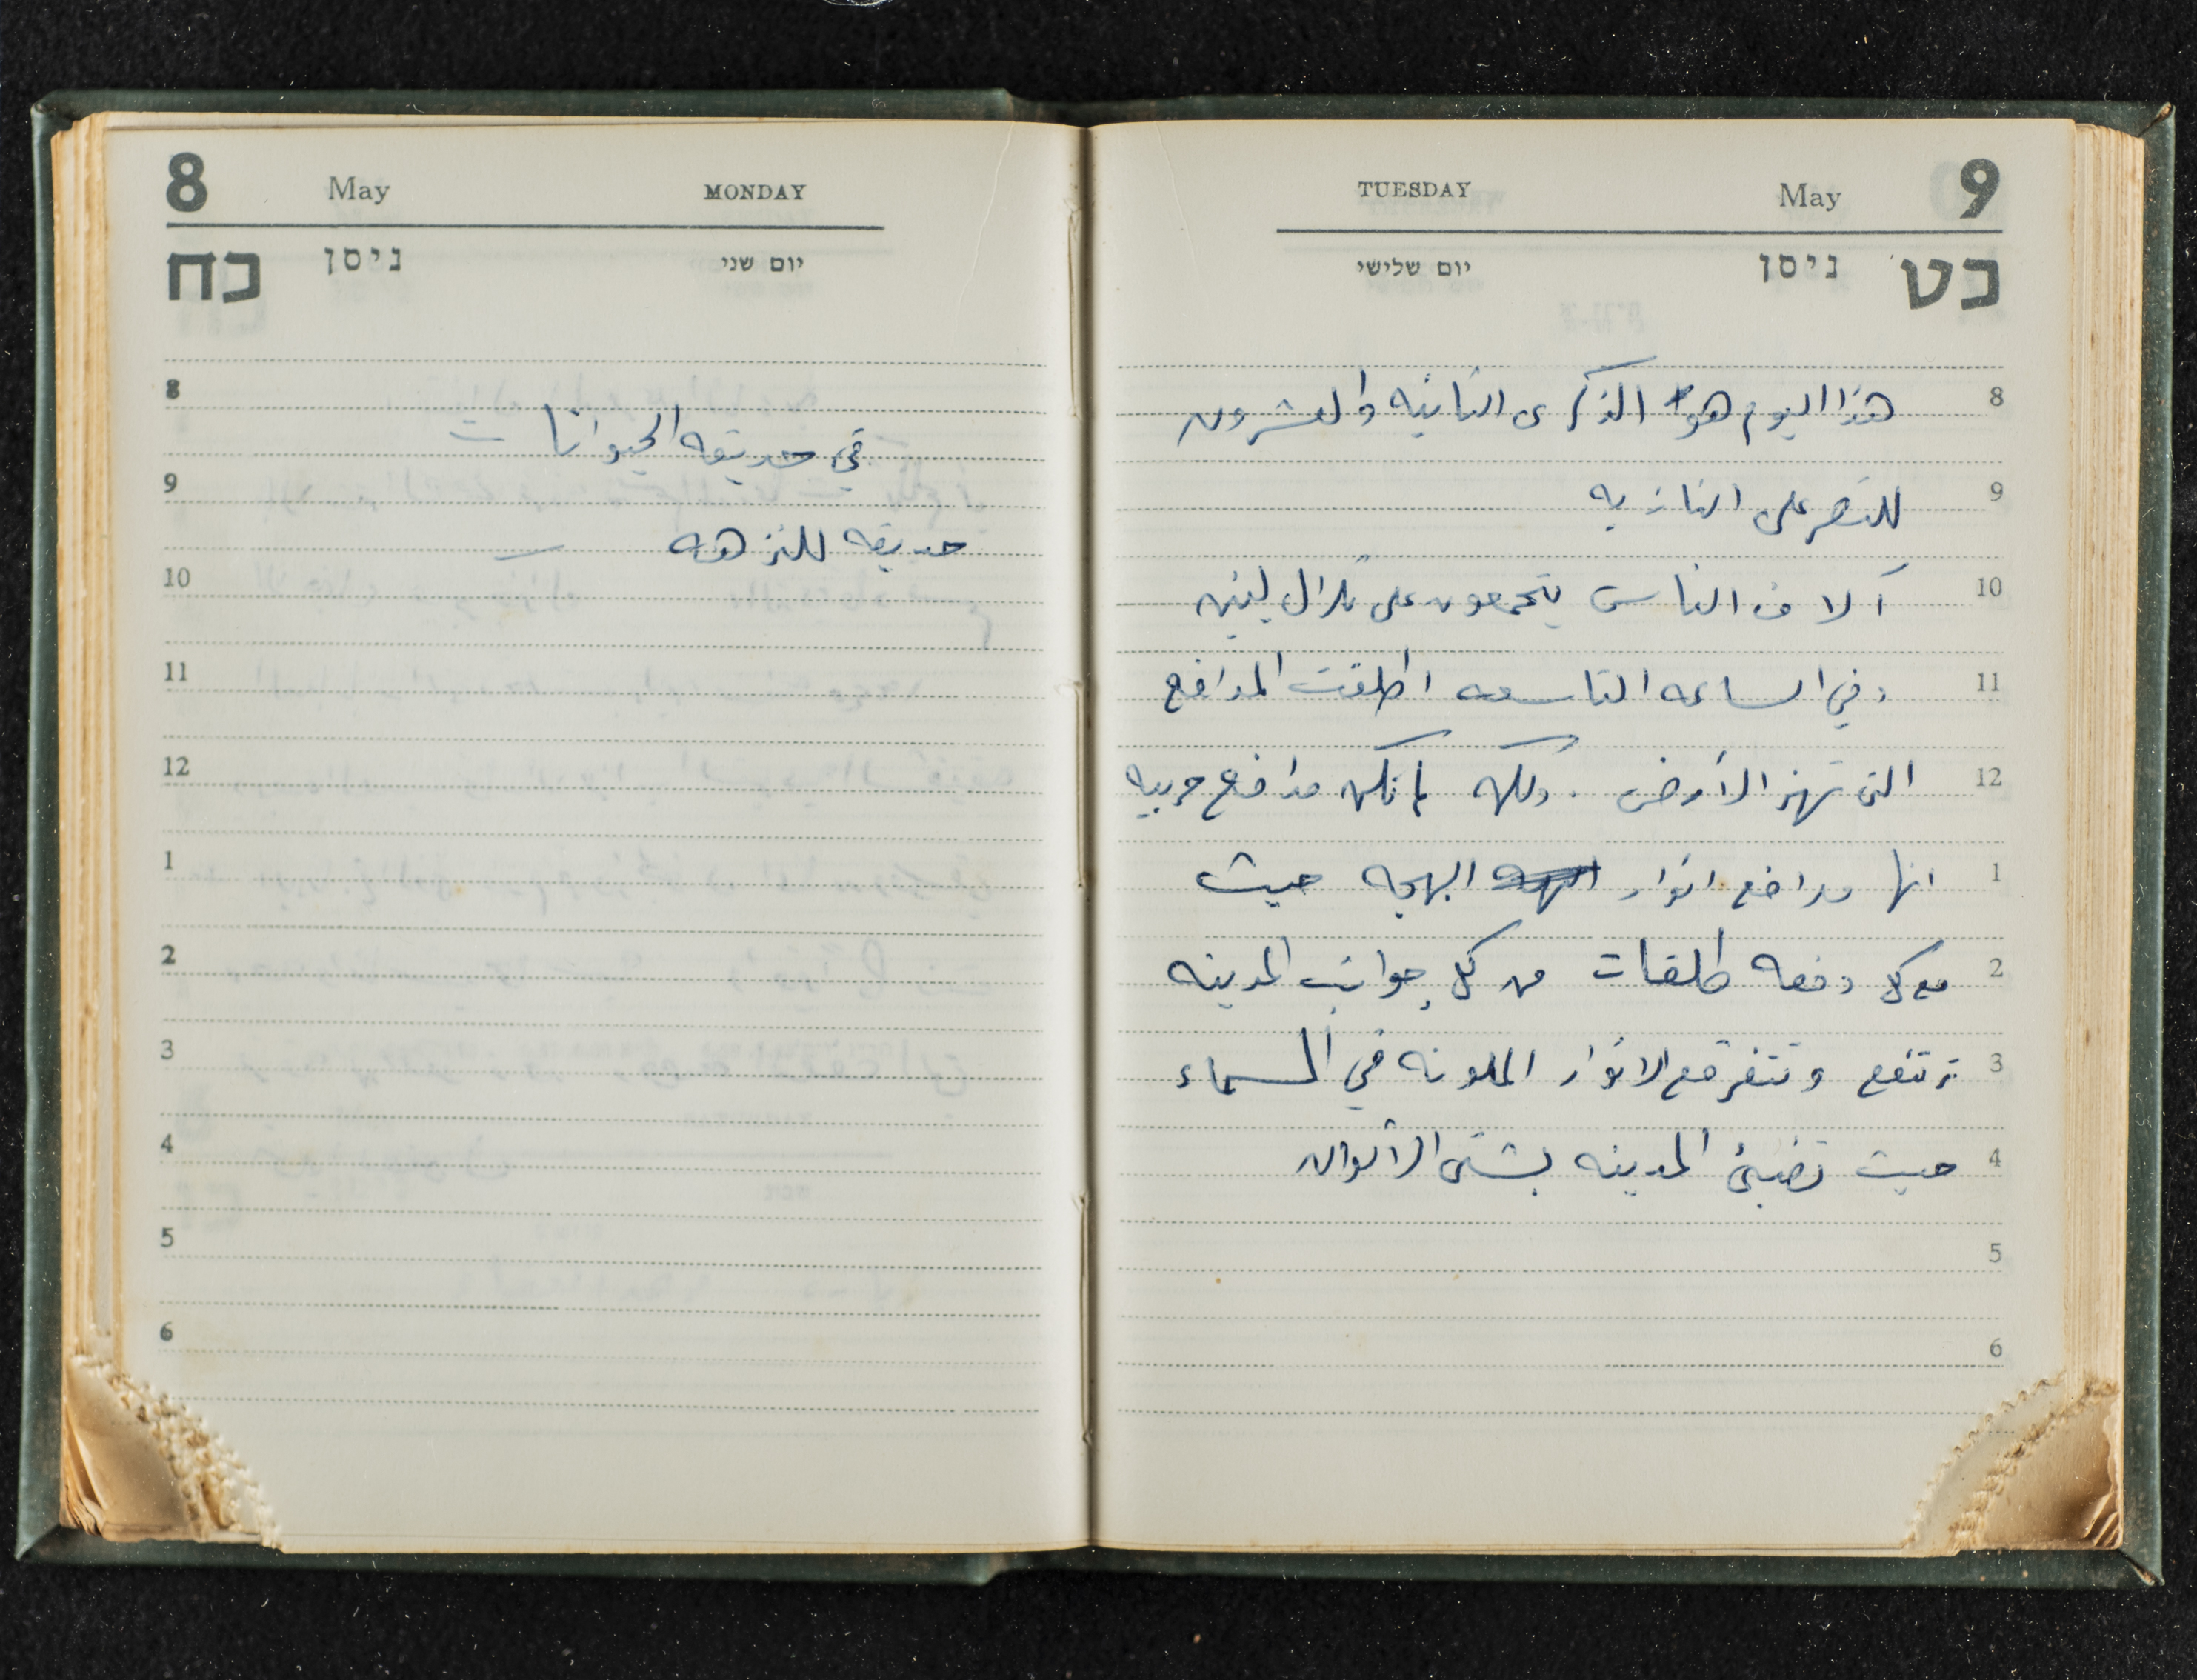 8 May MONDAY
כח ניסן יום שני
8
في حديقه الحيوانات
9
حديقه للنزهه
10
11
12
1
2
3
4
5
6
TUESDAY May 9
יום שלישי ניסן כט
8 هذا اليوم هو الذكرى الثانيه والعشرون
9 للنصر على النازيه
10 آلاف الناس يتجمعون على تلال لينين
11 وفي الساعه التاسعه اطلقت المدافع
12 التي تهز الأرض . ولكن لم تكن مدافع حربيه
1 انها مدافع انوار البهجه حيث
2 مع كل دفعه طلقات من كل جوانب المدينه
3 ترتفع وتتفرقع الانوار الملونه في السماء
4 حيث تضيئ المدينه بشتى الألوان
5
6